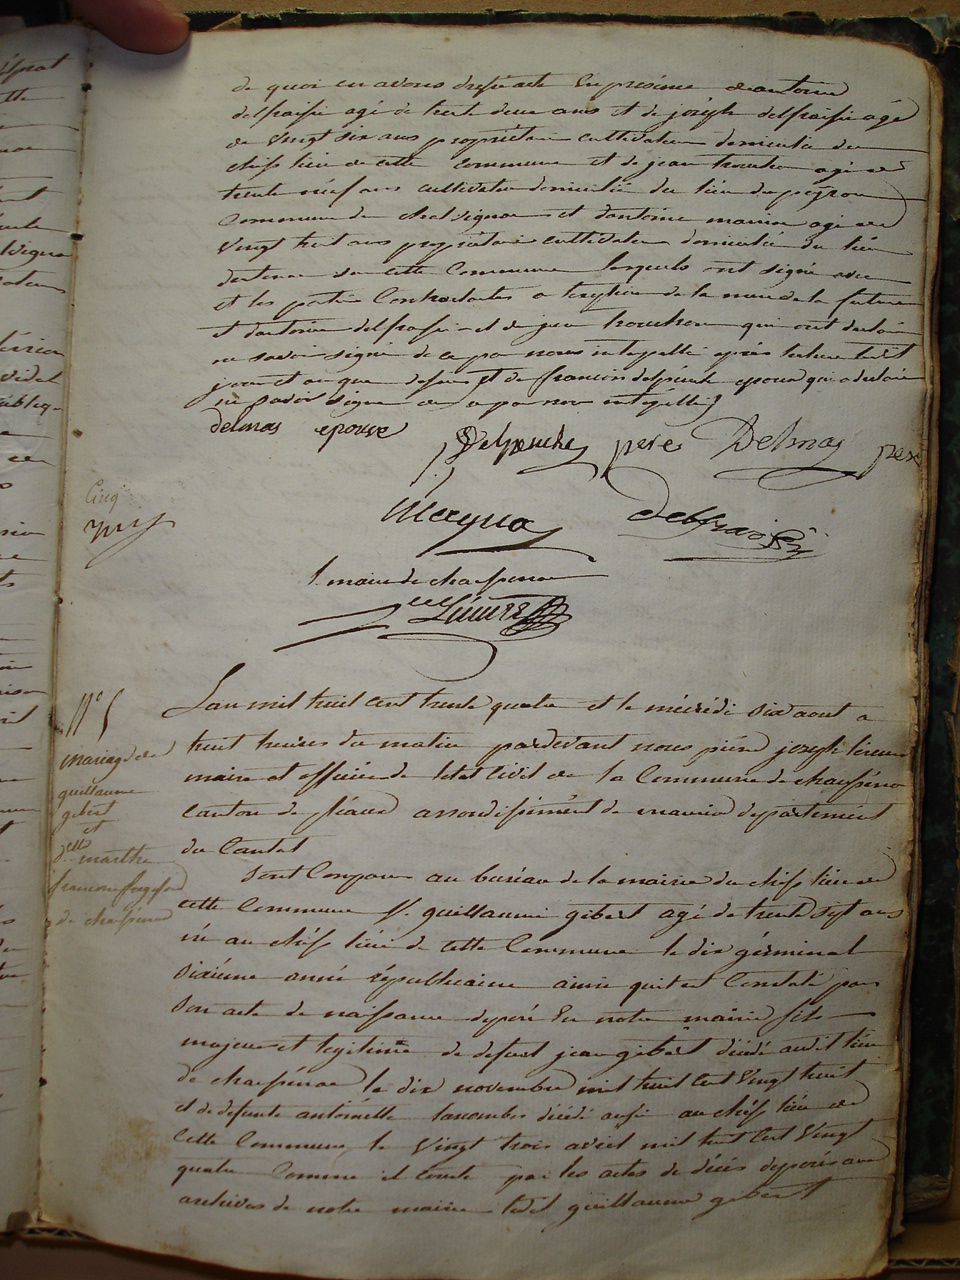 de quoi en avons dressé acte En présence d'antoine
delfraissi agé de trente deux ans et de joseph delfraissi agé
de vingt six ans propriétaire cultivateur domicilié du
cheflieu de cette commune et de jean agé de
trente neuf ans cultivateur domicilié du lieu du peyrou
Commune de chalvignac et d'antoine agé de
vingt huit ans propriétaire cultivateur domicilié du lieu
de cette Commune lesquels ont signé avec
et les parties Contractantes a de la mere de la future
et d'antoine delfraissi et de jean qui ont declaré
ne savoir signer de ce par nous interpellé après lecture
jour et an que dessus et de francois delpeuch epoux qui a declaré
ne savoir signer de ce par nous interpellé
delmas epouse Delpeuch pere Delmas pere
Cinq
delfraissi
le maire de chaussenac
N° 5
Mariage de
guillaume
gibert
et
dlle marthe
francoise
de chaussenac
L'an mil huit cent trente quatre et le mécredi six aout a
huit heures du matin pardevant nous piérre joseph
maire et officiér de l'etat Civil de la Commune de chaussénac
canton de pléaux arrondissément de mauriac departement
du Cantal
Sont Comparus au buréau de la mairie du chéf lieu de
cette Commune Sr guillaume gibert agé de trente sept ans
né au chéf liéu de cette Commune le dix gérminal
Sixiéme année républicaine ainsi qu'il est Constaté par
Son acte de naissance deposé En notre mairie fils
majeur et legitime de defunt jean gibert décédé audit lieu
de chaussénac le dix novembre mil huit cent vingt huit
et de defunte antoinette décédé aussi au chéf lieu de
Cette Commune le vingt trois avril mil huit Cent vingt
quatre comme il conste par les actes de décés deposés aux
archives de notre mairie ledit guillaume gibert